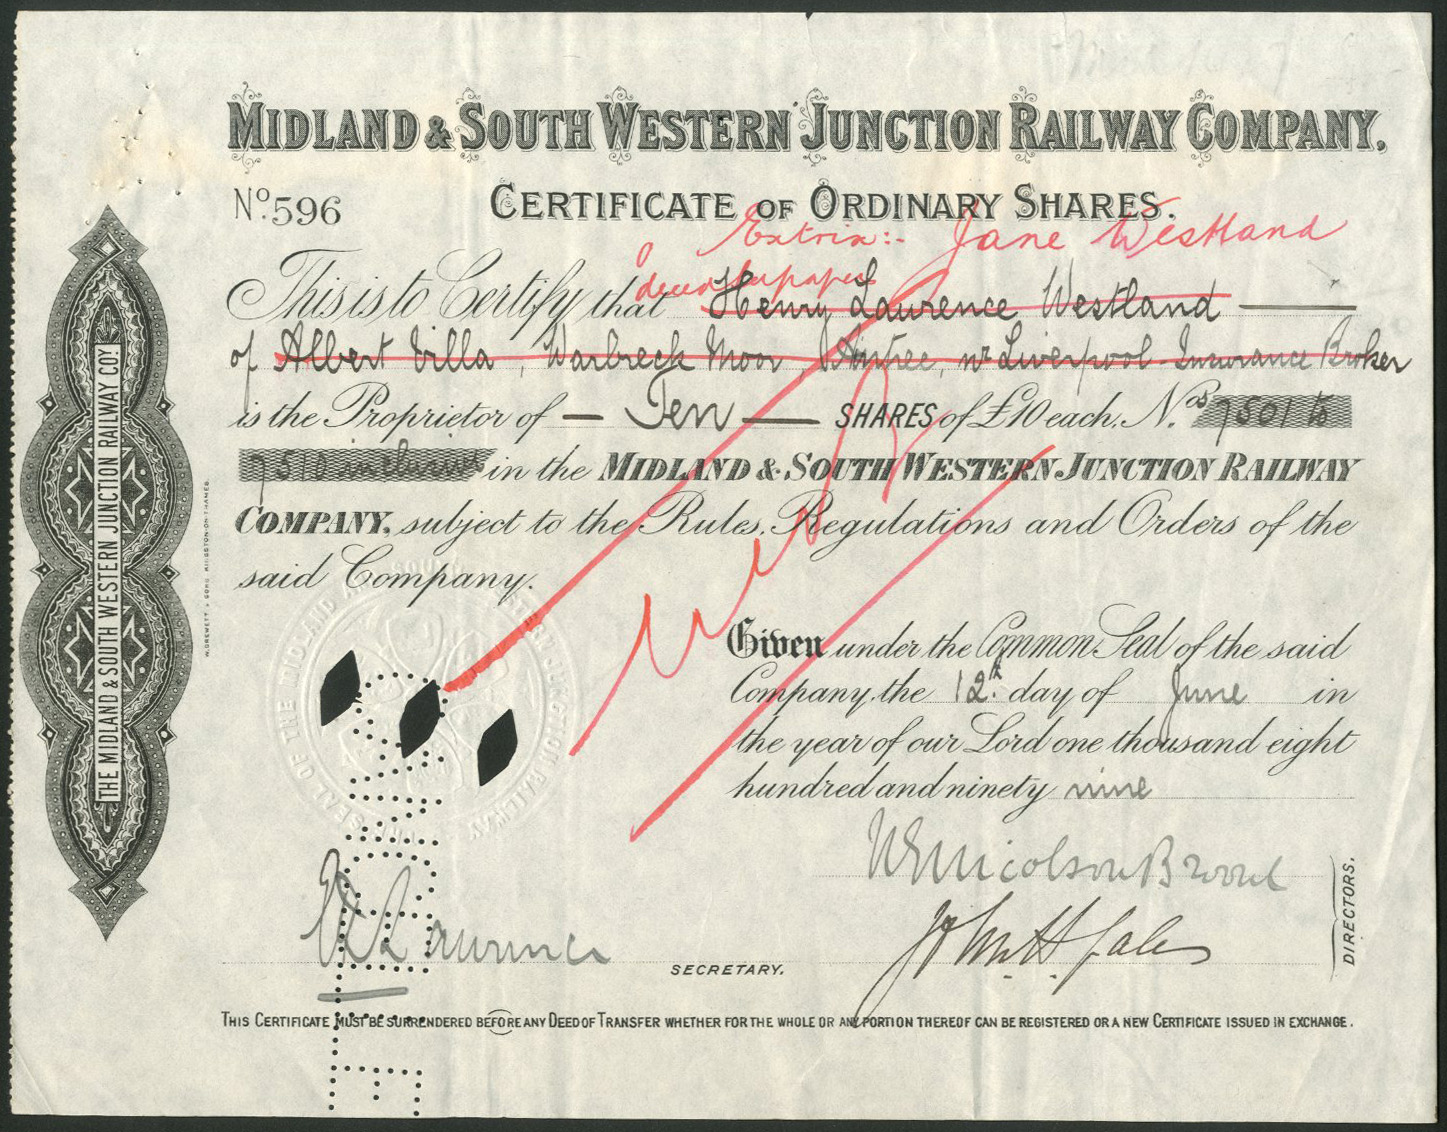 MIDLAND & SOUTH WESTERN JUNCTION RAILWAY COMPANY.
No. 596
CERTIFICATE OF ORDINARY SHARES.
Extrix:- Jane Westland
This is to Certify that Henry Laurence Westland
of Albert Villa, Warbreck Moor, Aintree, nr Liverpool Insurance Broker
is the Proprietor of — Ten — SHARES of £10 each. Nos 7501 to
7510 inclusive in the MIDLAND & SOUTH WESTERN JUNCTION RAILWAY
COMPANY, subject to the Rules, Regulations and Orders of the
said Company.
Given under the Common Seal of the said
Company, the 12th day of June in
the year of our Lord one thousand eight
hundred and ninety nine
W Nicolson
DIRECTORS.
Lawrence
SECRETARY.
THIS CERTIFICATE MUST BE SURRENDERED BEFORE ANY DEED OF TRANSFER WHETHER FOR THE WHOLE OR ANY PORTION THEREOF CAN BE REGISTERED OR A NEW CERTIFICATE ISSUED IN EXCHANGE.
THE MIDLAND & SOUTH WESTERN JUNCTION RAILWAY COY
W. DREWETT & SONS, KINGSTON-THAMES.
SEAL OF THE MIDLAND AND SOUTH WESTERN JUNCTION RAILWAY